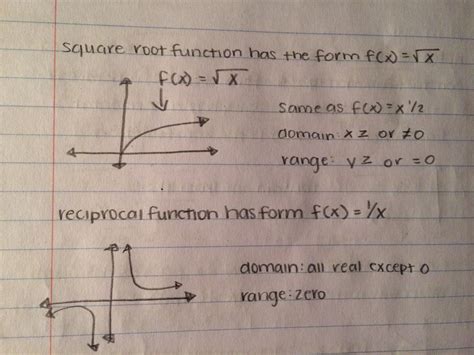 square root function has the form f(x) = √x
f(x) = √x
same as f(x) = x 1/2
domain: x z or ≠0
range: y z or = 0
reciprocal function has form f(x) = 1/x
domain: all real except 0
range: zero